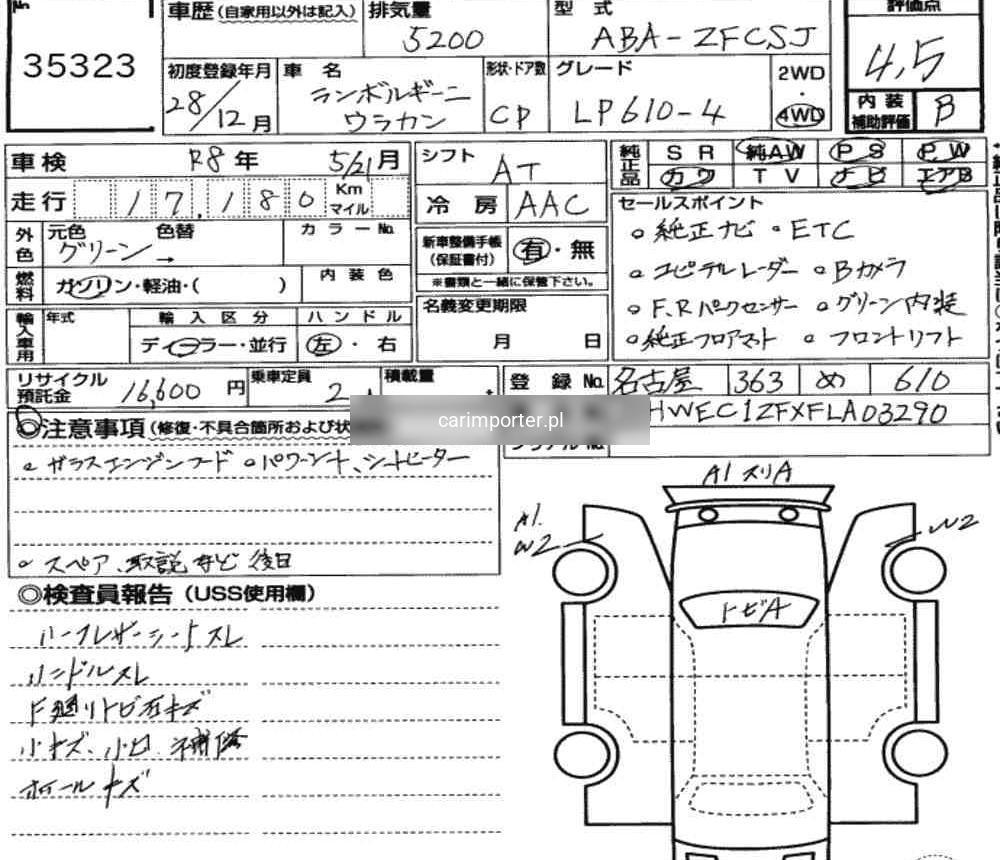 No.
35323
車歴(自家用以外は記入) 排気量 型式 評価点
5200 ABA-ZFCSJ 4,5
初度登録年月 車名 形状・ドア数 グレード 2WD・4WD
28/12月 ランボルギーニ ウラカン CP LP610-4
内装補助評価 B
車検 R8年 5/21月 シフト AT 純正品 SR 純AW PS PW
カワ TV ナビ エアB
走行 17,180 Km マイル 冷房 AAC セールスポイント
外色 元色 色替 カラーNo.
グリーン→
新車整備手帳(保証書付) 有・無
※書類と一緒に保管下さい。
純正ナビ ・ETC
コピテルレーダー Bカメラ
F.Rパークセンサー グリーン内装
純正フロアマット フロントリフト
燃料 ガソリン・軽油・( ) 内装色
名義変更期限 月 日
輸入車用 年式 輸入区分 ハンドル
ディーラー・並行 左・右
リサイクル預託金 16,600円 乗車定員 2人 積載量
登録No. 名古屋 363 め 610
carimporter.pl
HWEC1ZFXFLA03290
◎注意事項(修復・不具合箇所および状
ガラスエンジンフード パワーシート、シートヒーター
スペア、取説など後日
◎検査員報告(USS使用欄)
ハーフレザーシートスレ
ハンドルスレ
F廻りトビ石キズ
小キズ、小凹、補修
ホイールキズ
A1 スリA
A1. W2
W2
トビA